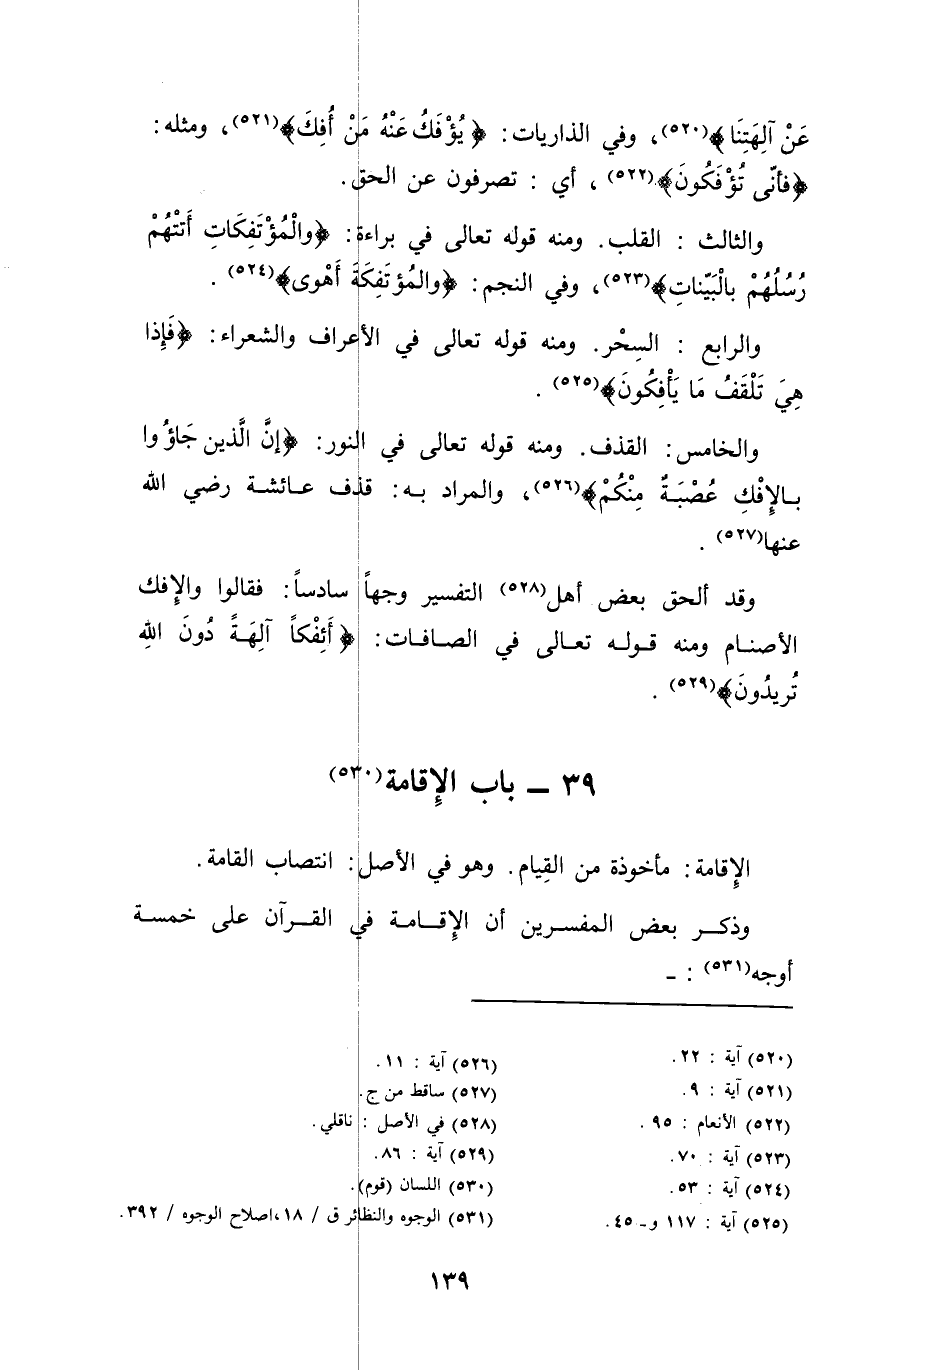 عَنْ آلِهَتِنَا﴾(٥٢٠)، وفي الذاريات: ﴿يُؤْفَكُ عَنْهُ مَنْ أُفِكَ﴾(٥٢١)، ومثله:
﴿فأنّى تُؤْفَكُونَ﴾(٥٢٢)، أي: تصرفون عن الحق.
والثالث: القلب. ومنه قوله تعالى في براءة: ﴿والْمُؤْتَفِكَاتِ أَتَتْهُمْ
رُسُلُهُمْ بالْبَيّناتِ﴾(٥٢٣)، وفي النجم: ﴿والمُؤتَفِكَةَ أَهْوى﴾(٥٢٤).
والرابع: السِحْر. ومنه قوله تعالى في الأعراف والشعراء: ﴿فَإِذا
هِيَ تَلْقَفُ مَا يَأْفِكُونَ﴾(٥٢٥).
والخامس: القذف. ومنه قوله تعالى في النور: ﴿إنَّ الَّذين جَاؤُوا
بـالإِفْكِ عُصْبَةٌ مِنْكُمْ﴾(٥٢٦)، والمراد بـه: قذف عـائشـة رضي الله
عنها(٥٢٧).
وقد ألحق بعض أهل(٥٢٨) التفسير وجهاً سادساً: فقالوا والإفك
الأصنـام ومنه قـولـه تعـالى في الصـافـات: ﴿أَئِفْكاً آلِهَةً دُونَ اللهِ
تُريدُونَ﴾(٥٢٩).
٣٩ ــ باب الإقامة(٥٣٠)
الإقامة: مأخوذة من القِيام. وهو في الأصل: انتصاب القامة.
وذكـر بعض المفسـرين أن الإقـامـة في القـرآن على خمسـة
أوجه(٥٣١): ـ
(٥٢٠) آية: ٢٢.
(٥٢١) آية: ٩.
(٥٢٢) الأنعام: ٩٥.
(٥٢٣) آية: ٧٠.
(٥٢٤) آية: ٥٣.
(٥٢٥) آية: ١١٧ و ـ ٤٥.
(٥٢٦) آية: ١١.
(٥٢٧) ساقط من ج.
(٥٢٨) في الأصل: ناقلي.
(٥٢٩) آية: ٨٦.
(٥٣٠) اللسان (قوم).
(٥٣١) الوجوه والنظائر ق / ١٨، اصلاح الوجوه / ٣٩٢.
١٣٩